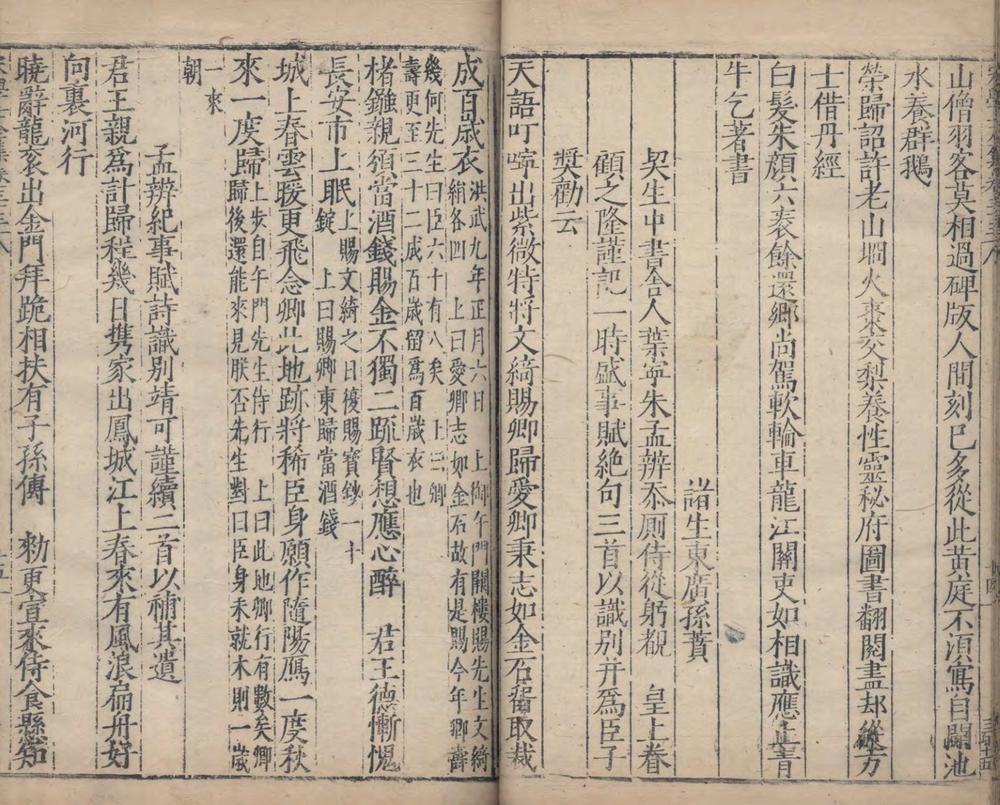 山僧羽客莫相過碑版人間刻已多從此黃庭不須寫自開池
水養群鵝
榮歸詔許老山垌火棗交梨養性靈秘府圖書翻閱盡却從方
士借丹經
白髮朱顏六袠餘還鄉尚駕軟輪車龍江關吏如相識應正青
牛乞著書
諸生東廣孫蕡
契生中書舍人葉寧朱孟辨忝厠侍從躬覩 皇上眷
顧之隆謹記一時盛事賦絶句三首以識别并爲臣子
奬勸云
天語叮嚀出紫微特將文綺賜卿歸愛卿秉志如金石留取裁
成百歲衣
洪武九年正月六日 上御午門闕樓賜先生文綺
絹各四 上曰愛卿志如金石故有是賜今年卿壽
幾何先生曰臣六十有八矣 上曰卿
壽更至三十二成百歲留爲百歲衣也
楮鏹親頒當酒錢賜金不獨二疏賢想應心醉 君王德慚愧
長安市上眠
上賜文綺之日復賜寶鈔一十
錠 上曰賜卿東歸當酒錢
城上春雲暖更飛念卿此地跡將稀臣身願作隨陽鴈一度秋
來一度歸
上步自午門先生侍行 上曰此地卿行有數矣卿
歸後還能來見朕否先生對曰臣身未就木則一歲
一來
朝
孟辨紀事賦詩識别靖可謹續二首以補其遺
君王親爲計歸程幾日携家出鳳城江上春來有風浪扁舟好
向裏河行
曉辭龍衮出金門拜跪相扶有子孫傳 勑更宣來侍食縣知